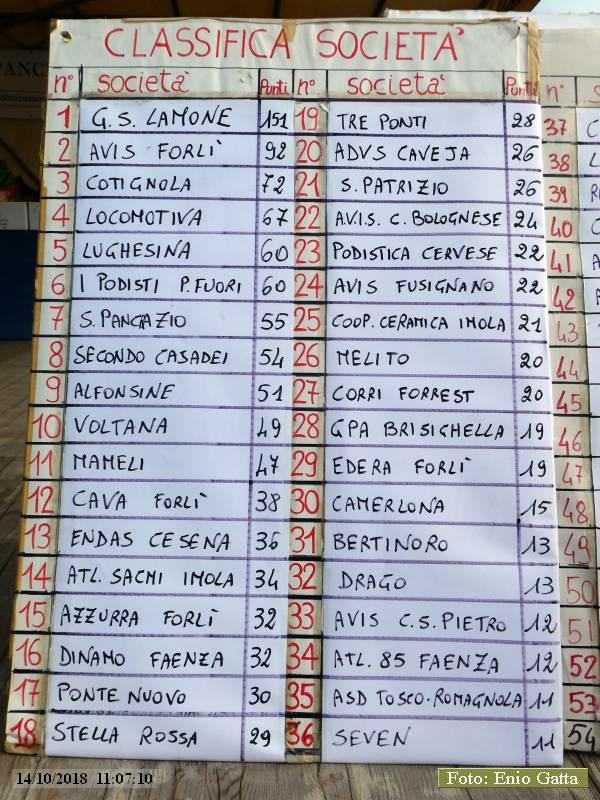 CLASSIFICA SOCIETA'
n° società Punti n° società Punti n°
1 G.S. LAMONE 151 19 TRE PONTI 28 37
2 AVIS FORLÌ 92 20 ADVS CAVEJA 26 38
3 COTIGNOLA 72 21 S. PATRIZIO 26 39
4 LOCOMOTIVA 67 22 A.V.I.S. C. BOLOGNESE 24 40
5 LUGHESINA 60 23 PODISTICA CERVESE 22 41
6 I PODISTI P. FUORI 60 24 AVIS FUSIGNANO 22 42
7 S. PANCRAZIO 55 25 COOP. CERAMICA IMOLA 21 43
8 SECONDO CASADEI 54 26 MELITO 20 44
9 ALFONSINE 51 27 CORRI FORREST 20 45
10 VOLTANA 49 28 GPA BRISIGHELLA 19 46
11 MAMELI 47 29 EDERA FORLÌ 19 47
12 CAVA FORLÌ 38 30 CAMERLONA 15 48
13 ENDAS CESENA 36 31 BERTINORO 13 49
14 ATL. SACMI IMOLA 34 32 DRAGO 13 50
15 AZZURRA FORLÌ 32 33 AVIS C.S. PIETRO 12 51
16 DINAMO FAENZA 32 34 ATL. 85 FAENZA 12 52
17 PONTE NUOVO 30 35 ASD TOSCO-ROMAGNOLA 11 53
18 STELLA ROSSA 29 36 SEVEN 11 54
14/10/2018 11:07:10
Foto: Enio Gatta